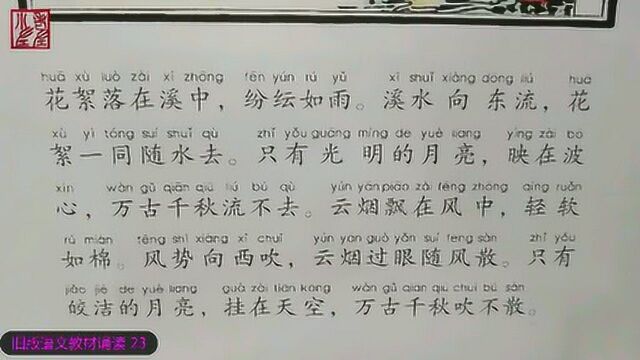 huā xù luò zài xī zhōng fēn yún rú yǔ xī shuǐ xiàng dōng liú huā
花絮落在溪中，纷纭如雨。溪水向东流，花
xù yì tóng suí shuǐ qù zhǐ yǒu guāng míng de yuè liang yìng zài bō
絮一同随水去。只有光明的月亮，映在波
xīn wàn gǔ qiān qiū liú bú qù yún yān piāo zài fēng zhōng qīng ruǎn
心，万古千秋流不去。云烟飘在风中，轻软
rú mián fēng shì xiàng xī chuī yún yan guò yǎn suí fēng sàn zhǐ yǒu
如棉。风势向西吹，云烟过眼随风散。只有
jiǎo jié de yuè liang guà zài tiān kōng wàn gǔ qiān qiū chuī bú sàn
皎洁的月亮，挂在天空，万古千秋吹不散。
旧版语文教材诵读 23